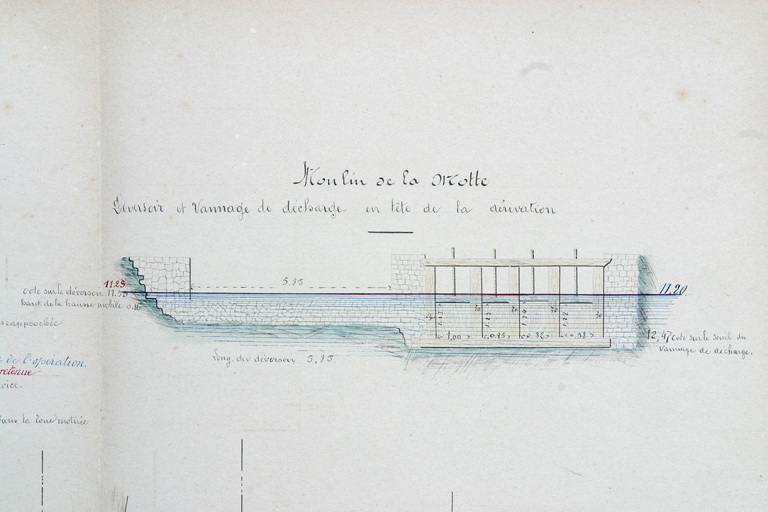 Moulin de la Motte
Déversoir et Vannage de décharge en tête de la dérivation
5.85
11.25
cote sur le déversoir
haut. de la hausse mobile
11.20.
rapprochée
de l'opération.
retenue
Long. du déversoir 5,85
1,00
0.85
12,47 cote sur le seuil du
vannage de décharge.
dans la roue motrice